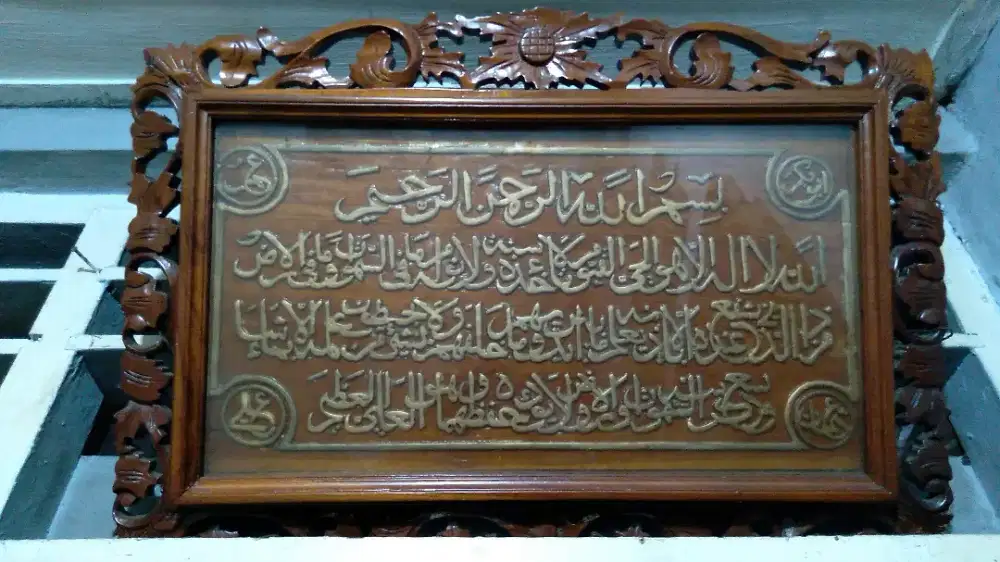 ابوبكر
عمر
بسم الله الرحمن الرحيم
الله لا اله الا هو الحي القيوم لا تأخذه سنة ولا نوم له ما في السموات وما في الارض
من ذا الذي يشفع عنده الا باذنه يعلم ما بين ايديهم وما خلفهم ولا يحيطون بشيء من علمه الا بما شاء
وسع كرسيه السموات والارض ولا يؤده حفظهما وهو العلي العظيم
عثمان
علي